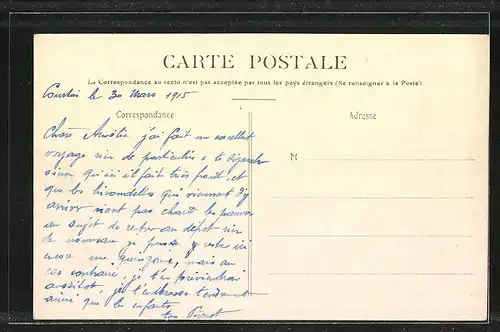 CARTE POSTALE
La Correspondance au recto n'est pas acceptée par tous les pays étrangers (Se renseigner à la Poste)
le 30 Mars 1915
Correspondance
Adresse
M
Chère Amélie j'ai fait un excellent
voyage rien de particulier a te
sinon qu'ici il fait très froid, et
que les qui viennent d'y
arriver n'ont pas chaud les pauvres
au sujet de retour au dépôt rien
de nouveau je pense y rester ici
encore une quinzaine, mais au
cas contraire, je t'en préviendrai
aussitôt, je t'embrasse tendrement
ainsi que les enfants
ton